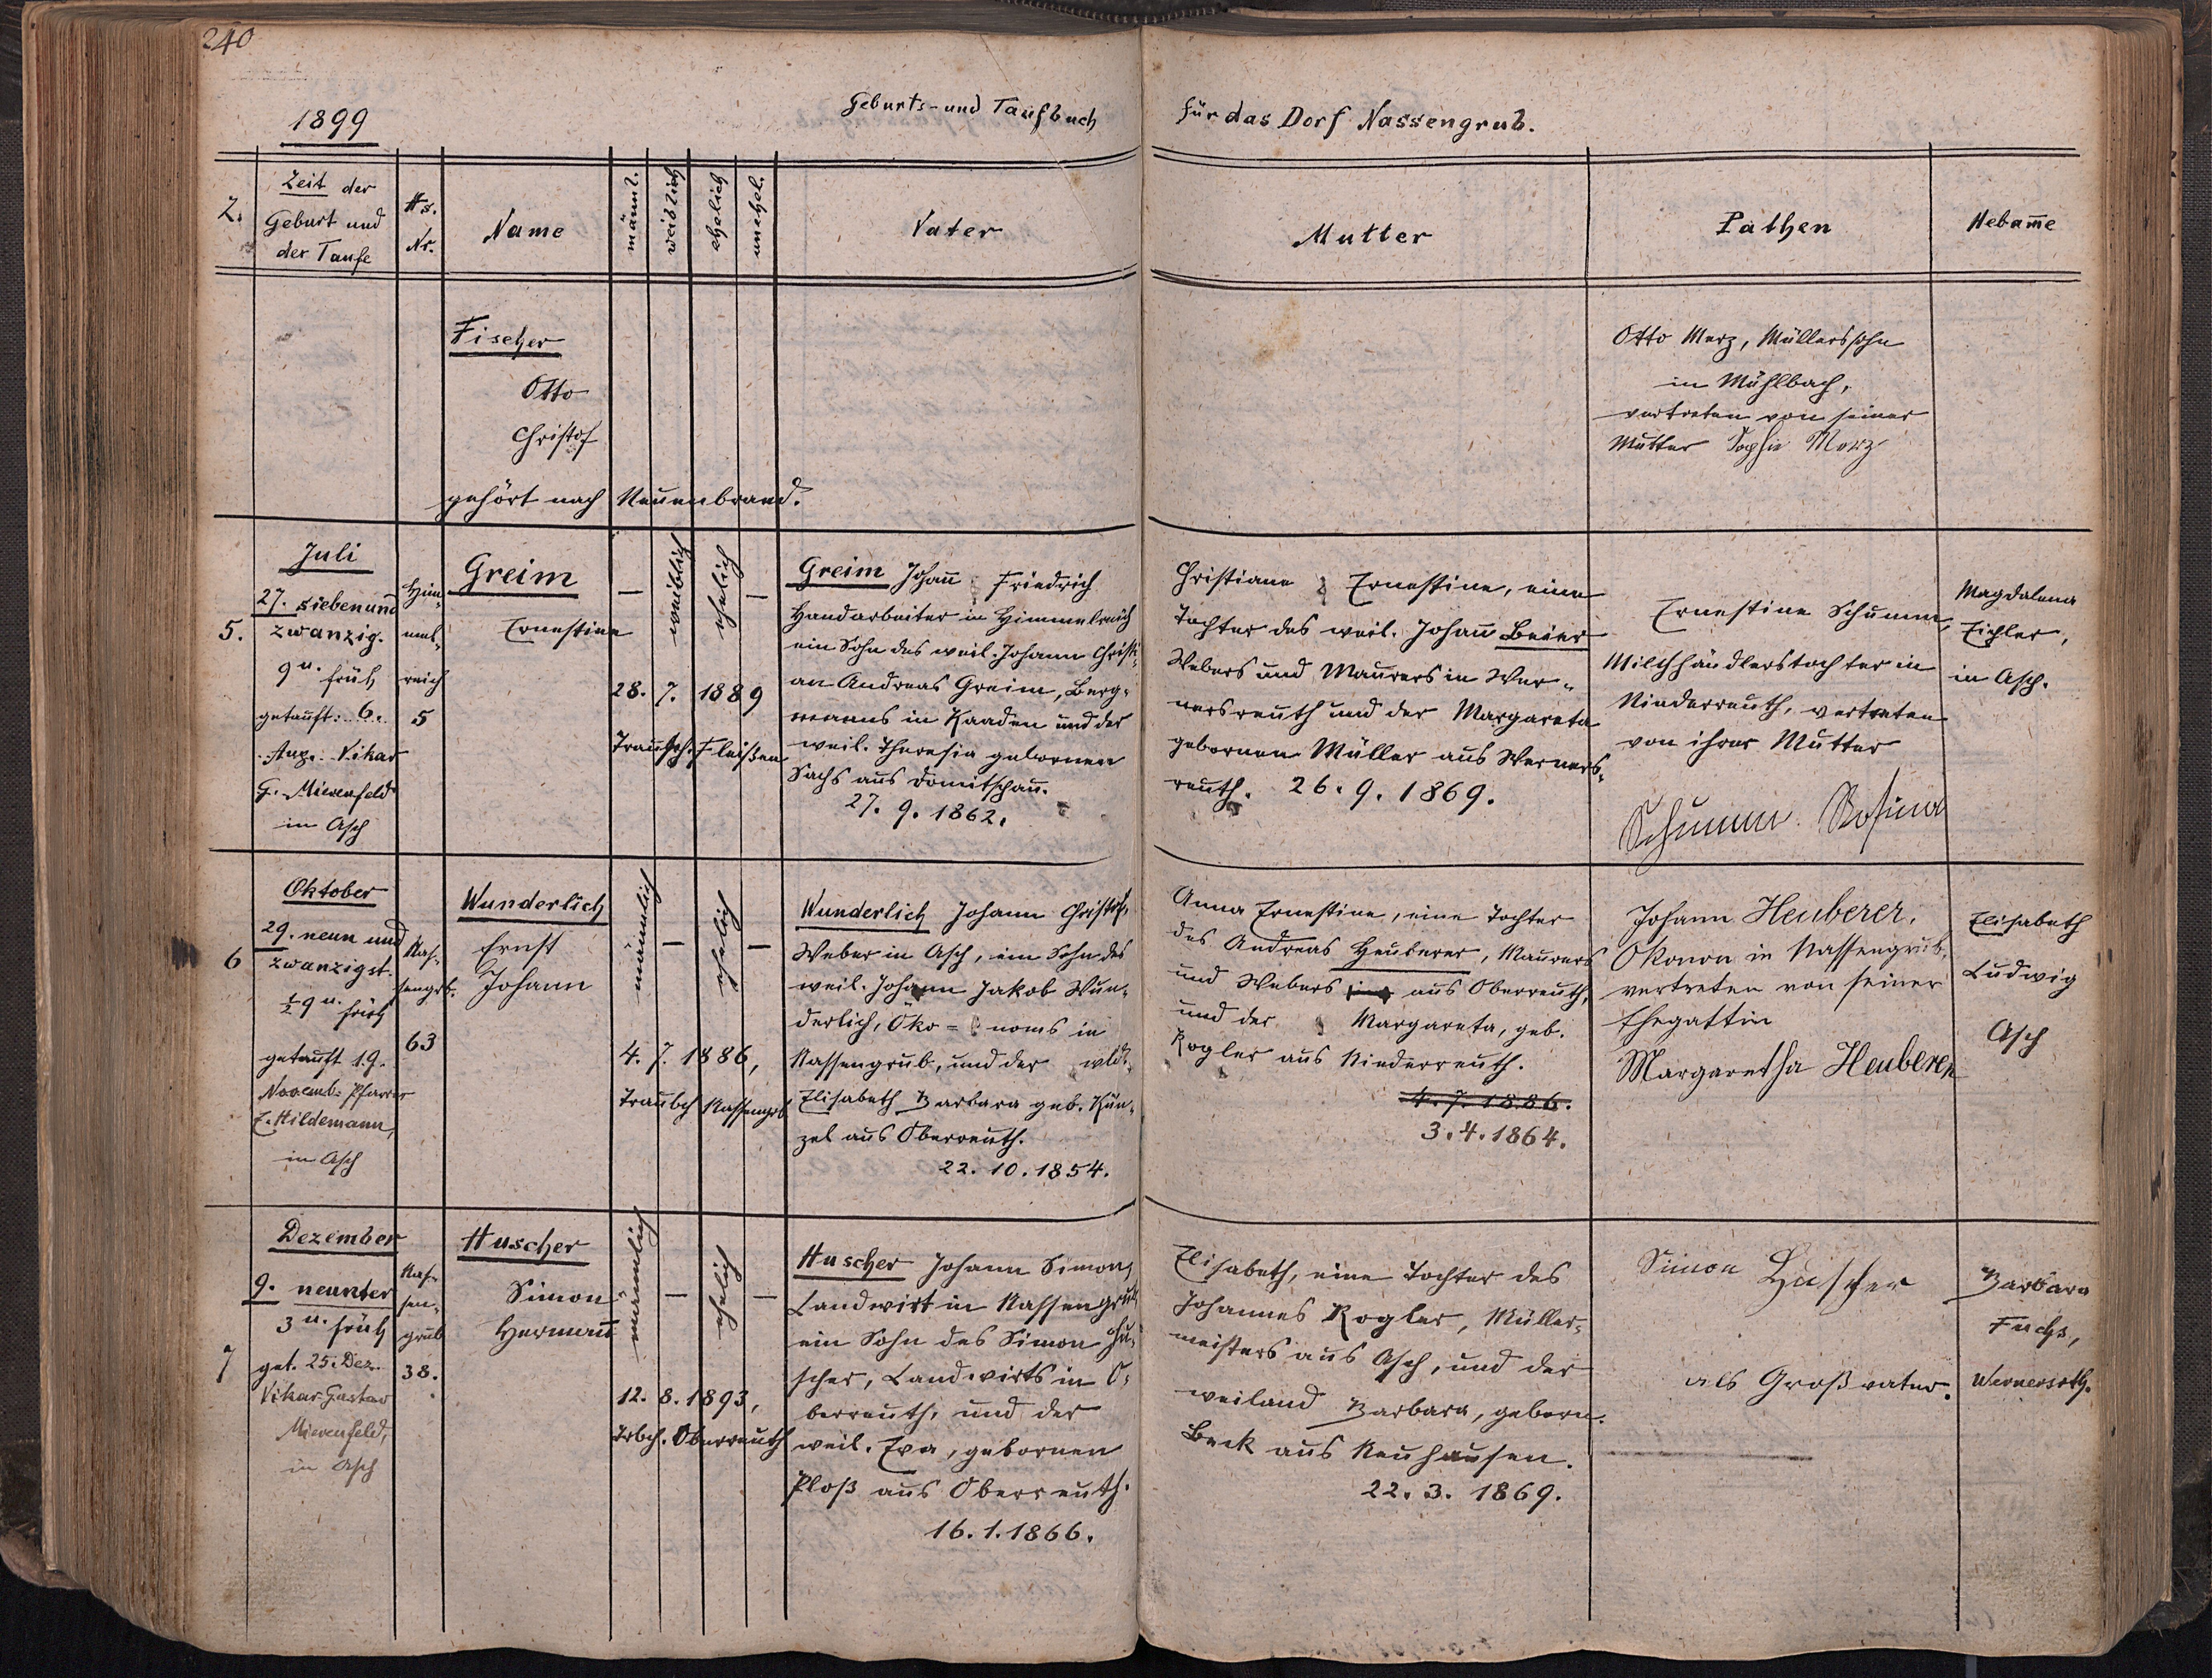 240
1899
Geburts- und Taufbuch
für das Dorf Nassengrub.
Z.
Zeit der
Geburt und
der Taufe
Hs.
Nr.
Name
männl.
weiblich
ehelich
unehel.
Vater
Mutter
Pathen
Hebam̅e
Fischer
Otto
Christof
gehört nach Neuenbrand.
Otto Merz, Müllerssohn
in Mühlbach,
vertreten von seiner
Mutter Sophie Merz
5.
Juli
27. siebenund
zwanzig.
9 u. früh
getauft: 6.
Aug. Vikar
G. Mierenfeld
in Asch
Him-
mel-
reich
5
Greim
Ernestine
—
weiblich
ehelich
—
28. 7. 1889
Traubch. Fleißen
Greim Johan̅ Friedrich
Handarbeiter in Himmelreich
ein Sohn des weil. Johann Christi-
an Andreas Greim, Berg-
manns in Kaaden und der
weil. Theresia gebornen
Sachs aus Domitschau.
27. 9. 1862.
Christiane Ernestine, eine
Tochter des weil. Johann Beier
Webers und Maurers in Wer-
nersreuth und der Margareta
gebornen Müller aus Werners-
reuth. 26. 9. 1869.
Ernestine Schumm,
Milchhändlerstochter in
Niederreuth, vertreten
von ihrer Mutter
Schumm Rosina
Magdalena
Eichler,
in Asch.
6
Oktober
29. neun und
zwanzigst.
½ 9 u. früh
getauft 19.
Novemb. Pfarrer
E. Hildemann,
in Asch
Nas-
sengrb.
63
Wunderlich
Ernst
Johann
männlich
—
ehelich
—
4. 7. 1886,
Traubch Nassengrb
Wunderlich Johann Christof,
Weber in Asch, ein Sohn des
weil. Johann Jakob Wun-
derlich, Öko = noms in
Nassengrub, und der wld.
Elisabeth Barbara geb. Kün-
zel aus Oberreuth.
22. 10. 1854.
Anna Ernestine, eine Tochter
des Andreas Heuberer, Maurers
und Webers in aus Oberreuth,
und der Margareta, geb.
Rogler aus Niederreuth.
4. 7. 1886.
3. 4. 1864.
Johann Heuberer,
Ökonom in Nassengrub,
vertreten von seiner
Ehegattin
Margaretha Heuberer
Elisabeth
Ludwig
Asch
7
Dezember
9. neunter
3 u. früh
get. 25. Dez.
Vikar Gustav
Mierenfeld,
in Asch
Nas-
sen-
grub
38.
Huscher
Simon
Herman̅
männlich
—
ehelich
—
12. 8. 1893,
Trbch. Oberreuth
Huscher Johann Simon,
Landwirt in Nassengrub,
ein Sohn des Simon Hu-
scher, Landwirts in O-
berreuth, und der
weil. Eva, gebornen
Ploß aus Oberreuth.
16. 1. 1866.
Elisabeth, eine Tochter des
Johannes Rogler, Müller-
meisters aus Asch, und der
weiland Barbara, geborn.
Beck aus Neuhausen.
22. 3. 1869.
Simon Huscher
als Großvater.
Barbara
Fuchs,
Wernersrth.